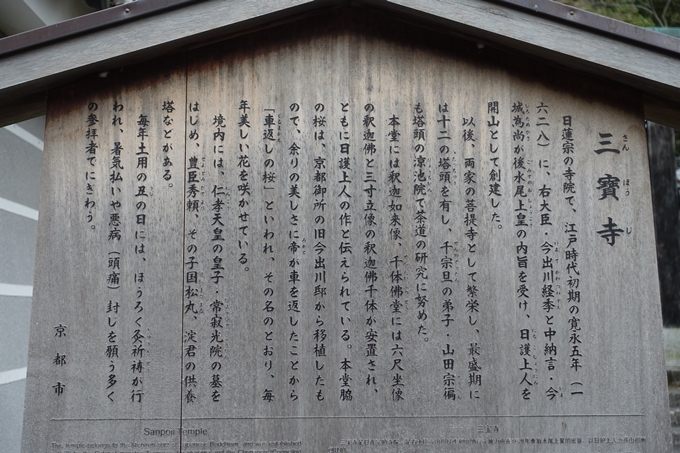 三寶寺
さんぽうじ
日蓮宗の寺院で、江戸時代初期の寛永五年（一
六二八）に、右大臣・今出川経季と中納言・今
城為尚が後水尾上皇の内旨を受け、日護上人を
開山として創建した。
以後、両家の菩提寺として繁栄し、最盛期に
は十二の塔頭を有し、千宗旦の弟子・山田宗徧
も塔頭の凉池院で茶道の研究に努めた。
本堂には釈迦如来像、千体佛堂には六尺坐像
の釈迦佛と三寸立像の釈迦佛千体が安置され、
ともに日護上人の作と伝えられている。本堂脇
の桜は、京都御所の旧今出川邸から移植したも
ので、余りの美しさに帝が車を返したことから
「車返しの桜」といわれ、その名のとおり、毎
年美しい花を咲かせている。
境内には、仁孝天皇の皇子・常寂光院の墓を
はじめ、豊臣秀頼、その子国松丸、淀君の供養
塔などがある。
毎年土用の丑の日には、ほうろく灸祈祷が行
われ、暑気払いや悪病（頭痛）封じを願う多く
の参拝者でにぎわう。
京都市
Sanpoji Temple
三宝寺